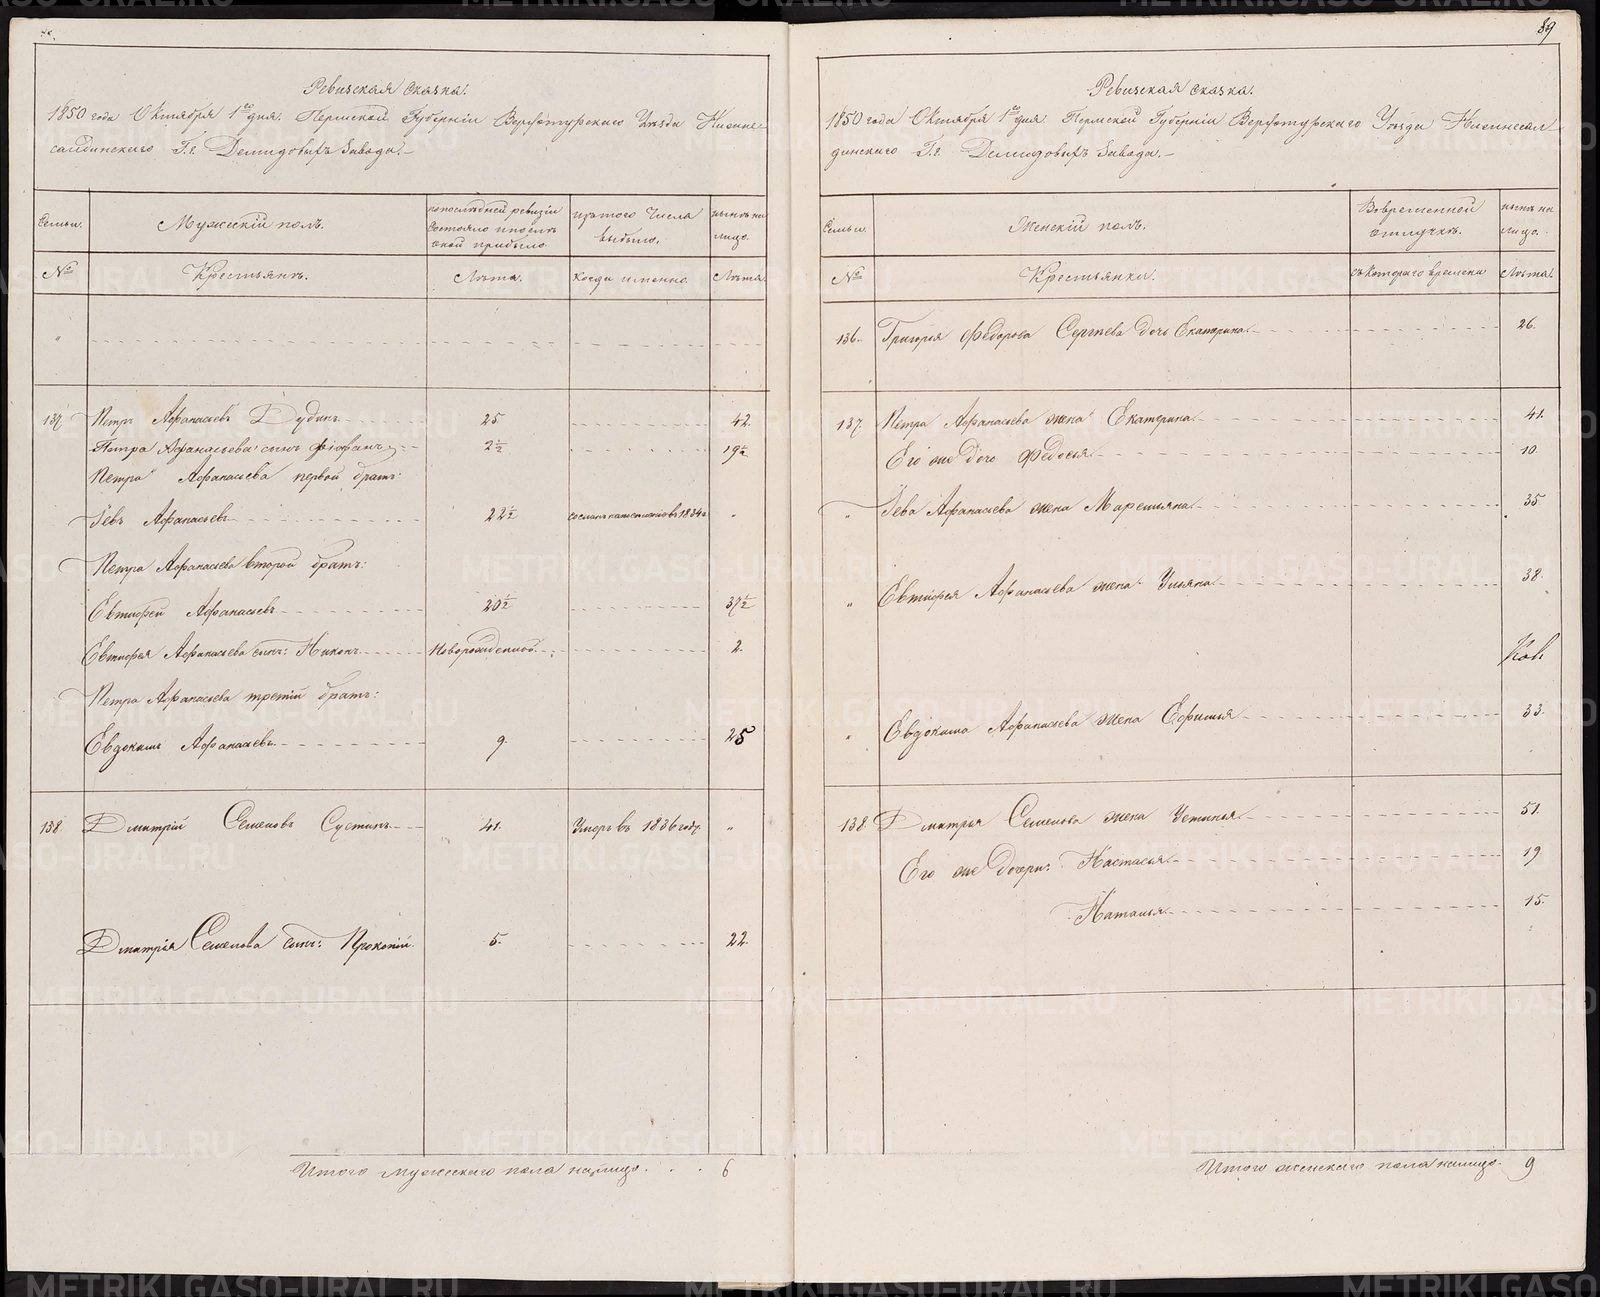 Ревизская сказка.
1850 года Октября 1го дня. Пермской Губернiи Верхотурскаго Уезда Нижне-
салдинскаго Г.г. Демидовыхъ Завода.
Семьи. Мужескiй полъ. по последней ревизiи состояло и после оной прибыло изъ того числа выбыло. ныне на лицо.
№ Крестьянъ. Лѣта. когда именно Лѣта.
137 Петръ Афанасьевъ Дудинъ 25. 42.
Петра Афанасьева сынъ Феофанъ 2½ 19½
Петра Афанасьева первой братъ:
Iевъ Афанасьевъ 22½ 1834 г. "
Петра Афанасьева второй братъ:
Евтифей Афанасьевъ 20½ 37½
Евтифея Афанасьева сынъ: Никонъ Новорожденной 2.
Петра Афанасьева третiй братъ:
Евдокимъ Афанасьевъ 9. 25
138 Дмитрiй Семеновъ Сустинъ 41. Умеръ въ 1836 году. "
Дмитрiя Семенова сынъ: Прокопiй. 5. 22.
Итого Мужескаго пола на лицо . . . 6
89
Ревизская сказка.
1850 года Октября 1го дня Пермской Губернiи Верхотурскаго Уезда Нижнесал
динскаго Г.г. Демидовыхъ Завода.
Семьи. Женскiй полъ. Во временной отлучкѣ. ныне на лицо.
№ Крестьянки. съ котораго времени Лѣта.
136. Григорья Федорова Сергѣева дочь Екатерина 26.
137 Петра Афанасьева жена Екатерина 41.
Его же дочь Федосья 10.
" Iева Афанасьева жена Маремьяна 35
" Евтифея Афанасьева жена Ульяна 38.
" Евдокима Афанасьева жена Ефимья 33.
138. Дмитрья Семенова жена Устинья 51.
Его же дочери: Настасья 19
Наталья 15.
Итого женскаго пола на лицо. 9
METRIKI.GASO-URAL.RU